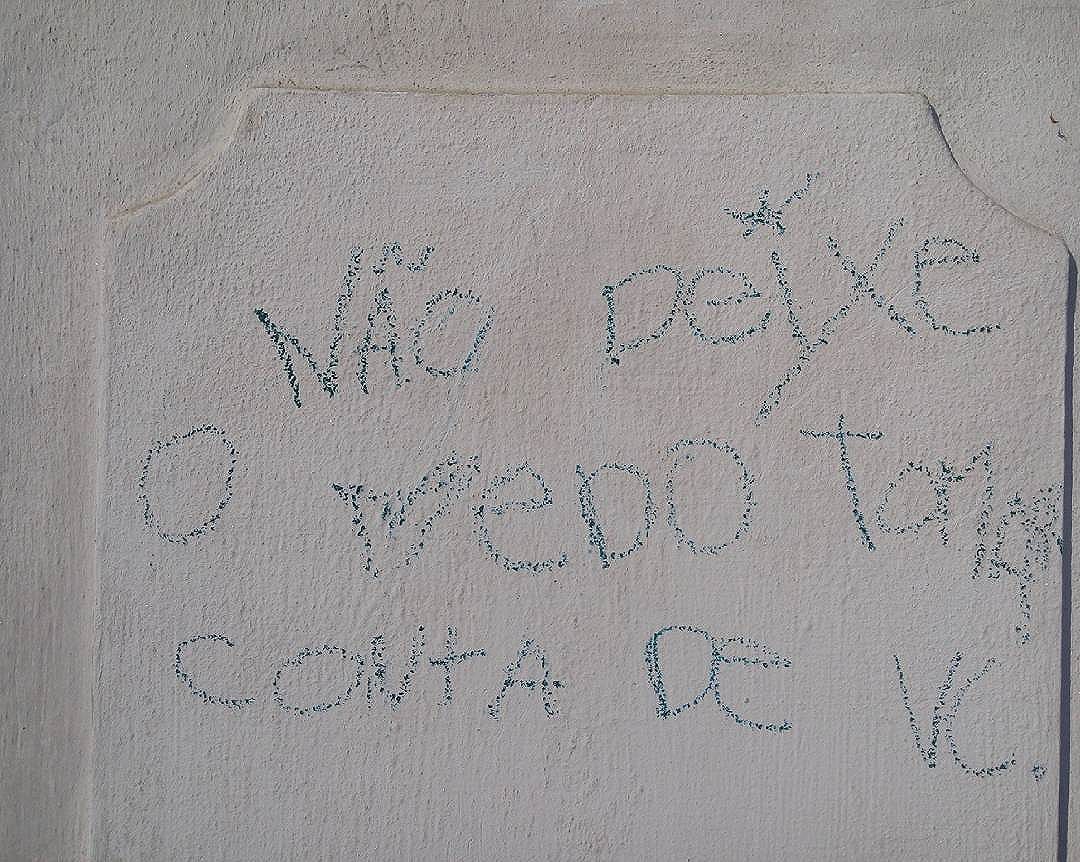 NÃO DeiXe
O medo tomar
CONTA DE VC.